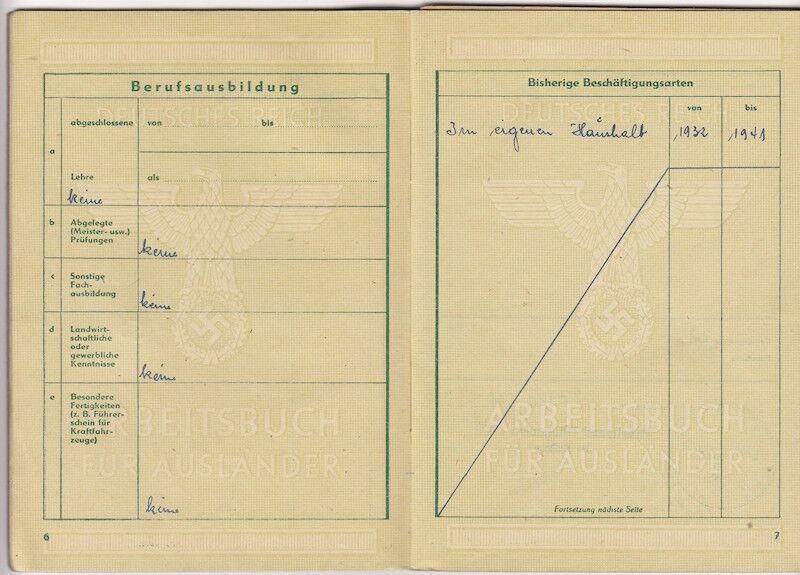 Berufsausbildung
DEUTSCHES REICH
abgeschlossene von bis
a
Lehre als
keine
b Abgelegte
(Meister- usw.)
Prüfungen
keine
c Sonstige
Fach-
ausbildung
keine
d Landwirt-
schaftliche
oder
gewerbliche
Kenntnisse
keine
e Besondere
Fertigkeiten
(z. B. Führer-
schein für
Kraftfahr-
zeuge)
keine
ARBEITSBUCH
FÜR AUSLÄNDER
6
Bisherige Beschäftigungsarten
von bis
DEUTSCHES REICH
Im eigenen Haushalt 1932 1941
ARBEITSBUCH
FÜR AUSLÄNDER
Fortsetzung nächste Seite
7